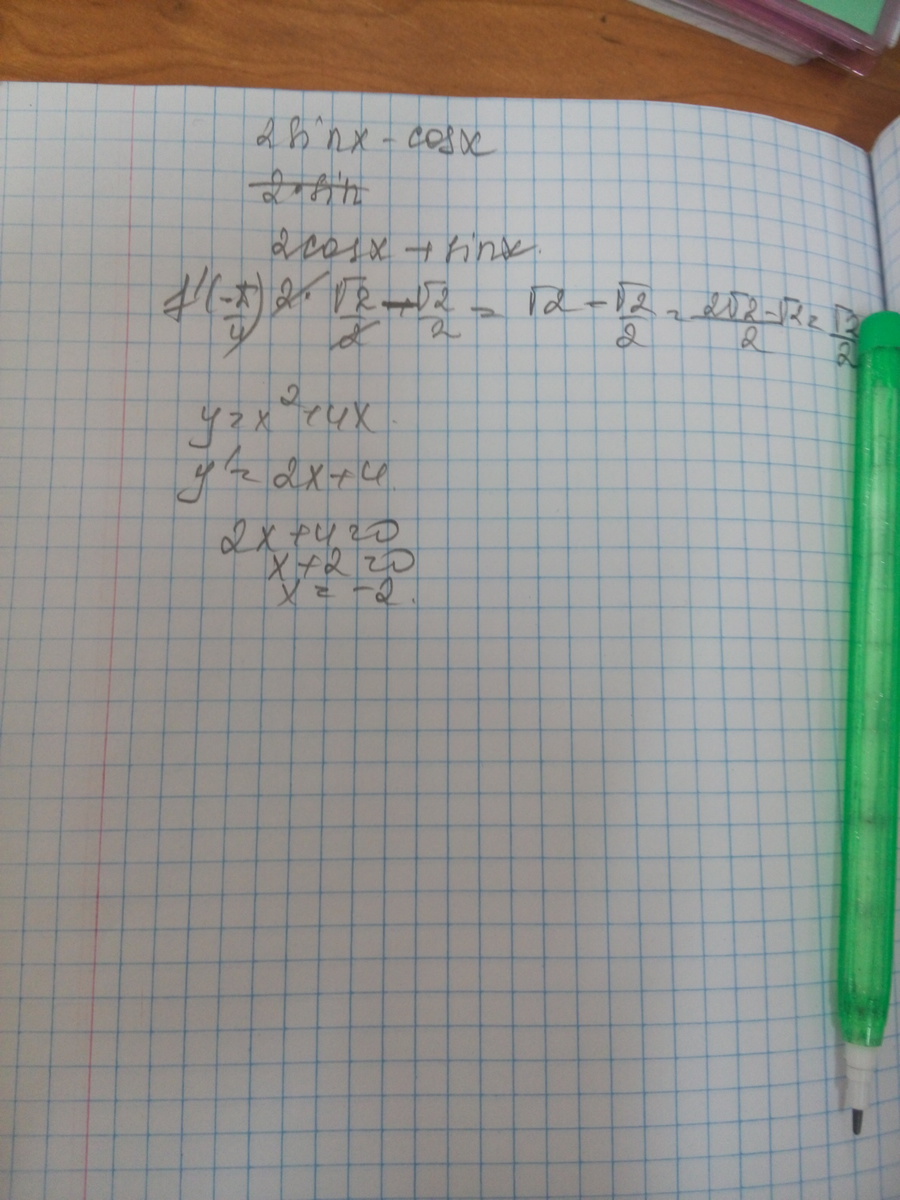 2sinx - cosx
2·sin
2cosx + sinx.
f'(-π/4) 2· √2/2 - √2/2 = √2 - √2/2 = 2√2-√2/2 = √2/2
y=x²+4x.
y'= 2x+4.
2x+4=0
x+2=0
x = -2.